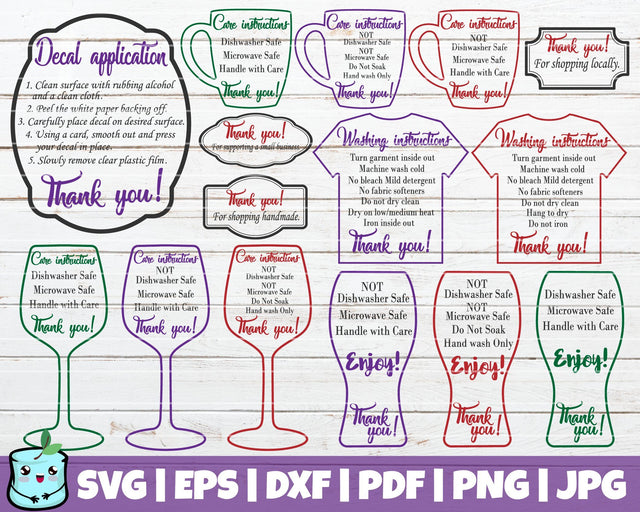 Decal application
1. Clean surface with rubbing alcohol
and a clean cloth.
2. Peel the white paper backing off.
3. Carefully place decal on desired surface.
4. Using a card, smooth out and press
your decal in place.
5. Slowly remove clear plastic film.
Thank you!
Care instructions
Dishwasher Safe
Microwave Safe
Handle with Care
Thank you!
Care instructions
NOT
Dishwasher Safe
NOT
Microwave Safe
Do Not Soak
Hand wash Only
Thank you!
Care instructions
NOT
Dishwasher Safe
Microwave Safe
Handle with Care
Thank you!
Thank you!
For shopping locally.
Thank you!
For supporting a small business.
Thank you!
For shopping handmade.
Washing instructions
Turn garment inside out
Machine wash cold
No bleach Mild detergent
No fabric softeners
Do not dry clean
Dry on low/medium heat
Iron inside out
Thank you!
Washing instructions
Turn garment inside out
Machine wash cold
No bleach Mild detergent
No fabric softeners
Do not dry clean
Hang to dry
Do not iron
Thank you!
Care instructions
Dishwasher Safe
Microwave Safe
Handle with Care
Thank you!
Care instructions
NOT
Dishwasher Safe
Microwave Safe
Handle with Care
Thank you!
Care instructions
NOT
Dishwasher Safe
NOT
Microwave Safe
Do Not Soak
Hand wash Only
Thank you!
NOT
Dishwasher Safe
Microwave Safe
Handle with Care
Enjoy!
Thank
you!
NOT
Dishwasher Safe
NOT
Microwave Safe
Do Not Soak
Hand wash Only
Enjoy!
Thank
you!
Dishwasher Safe
Microwave Safe
Handle with Care
Enjoy!
Thank
you!
SVG | EPS | DXF | PDF | PNG | JPG